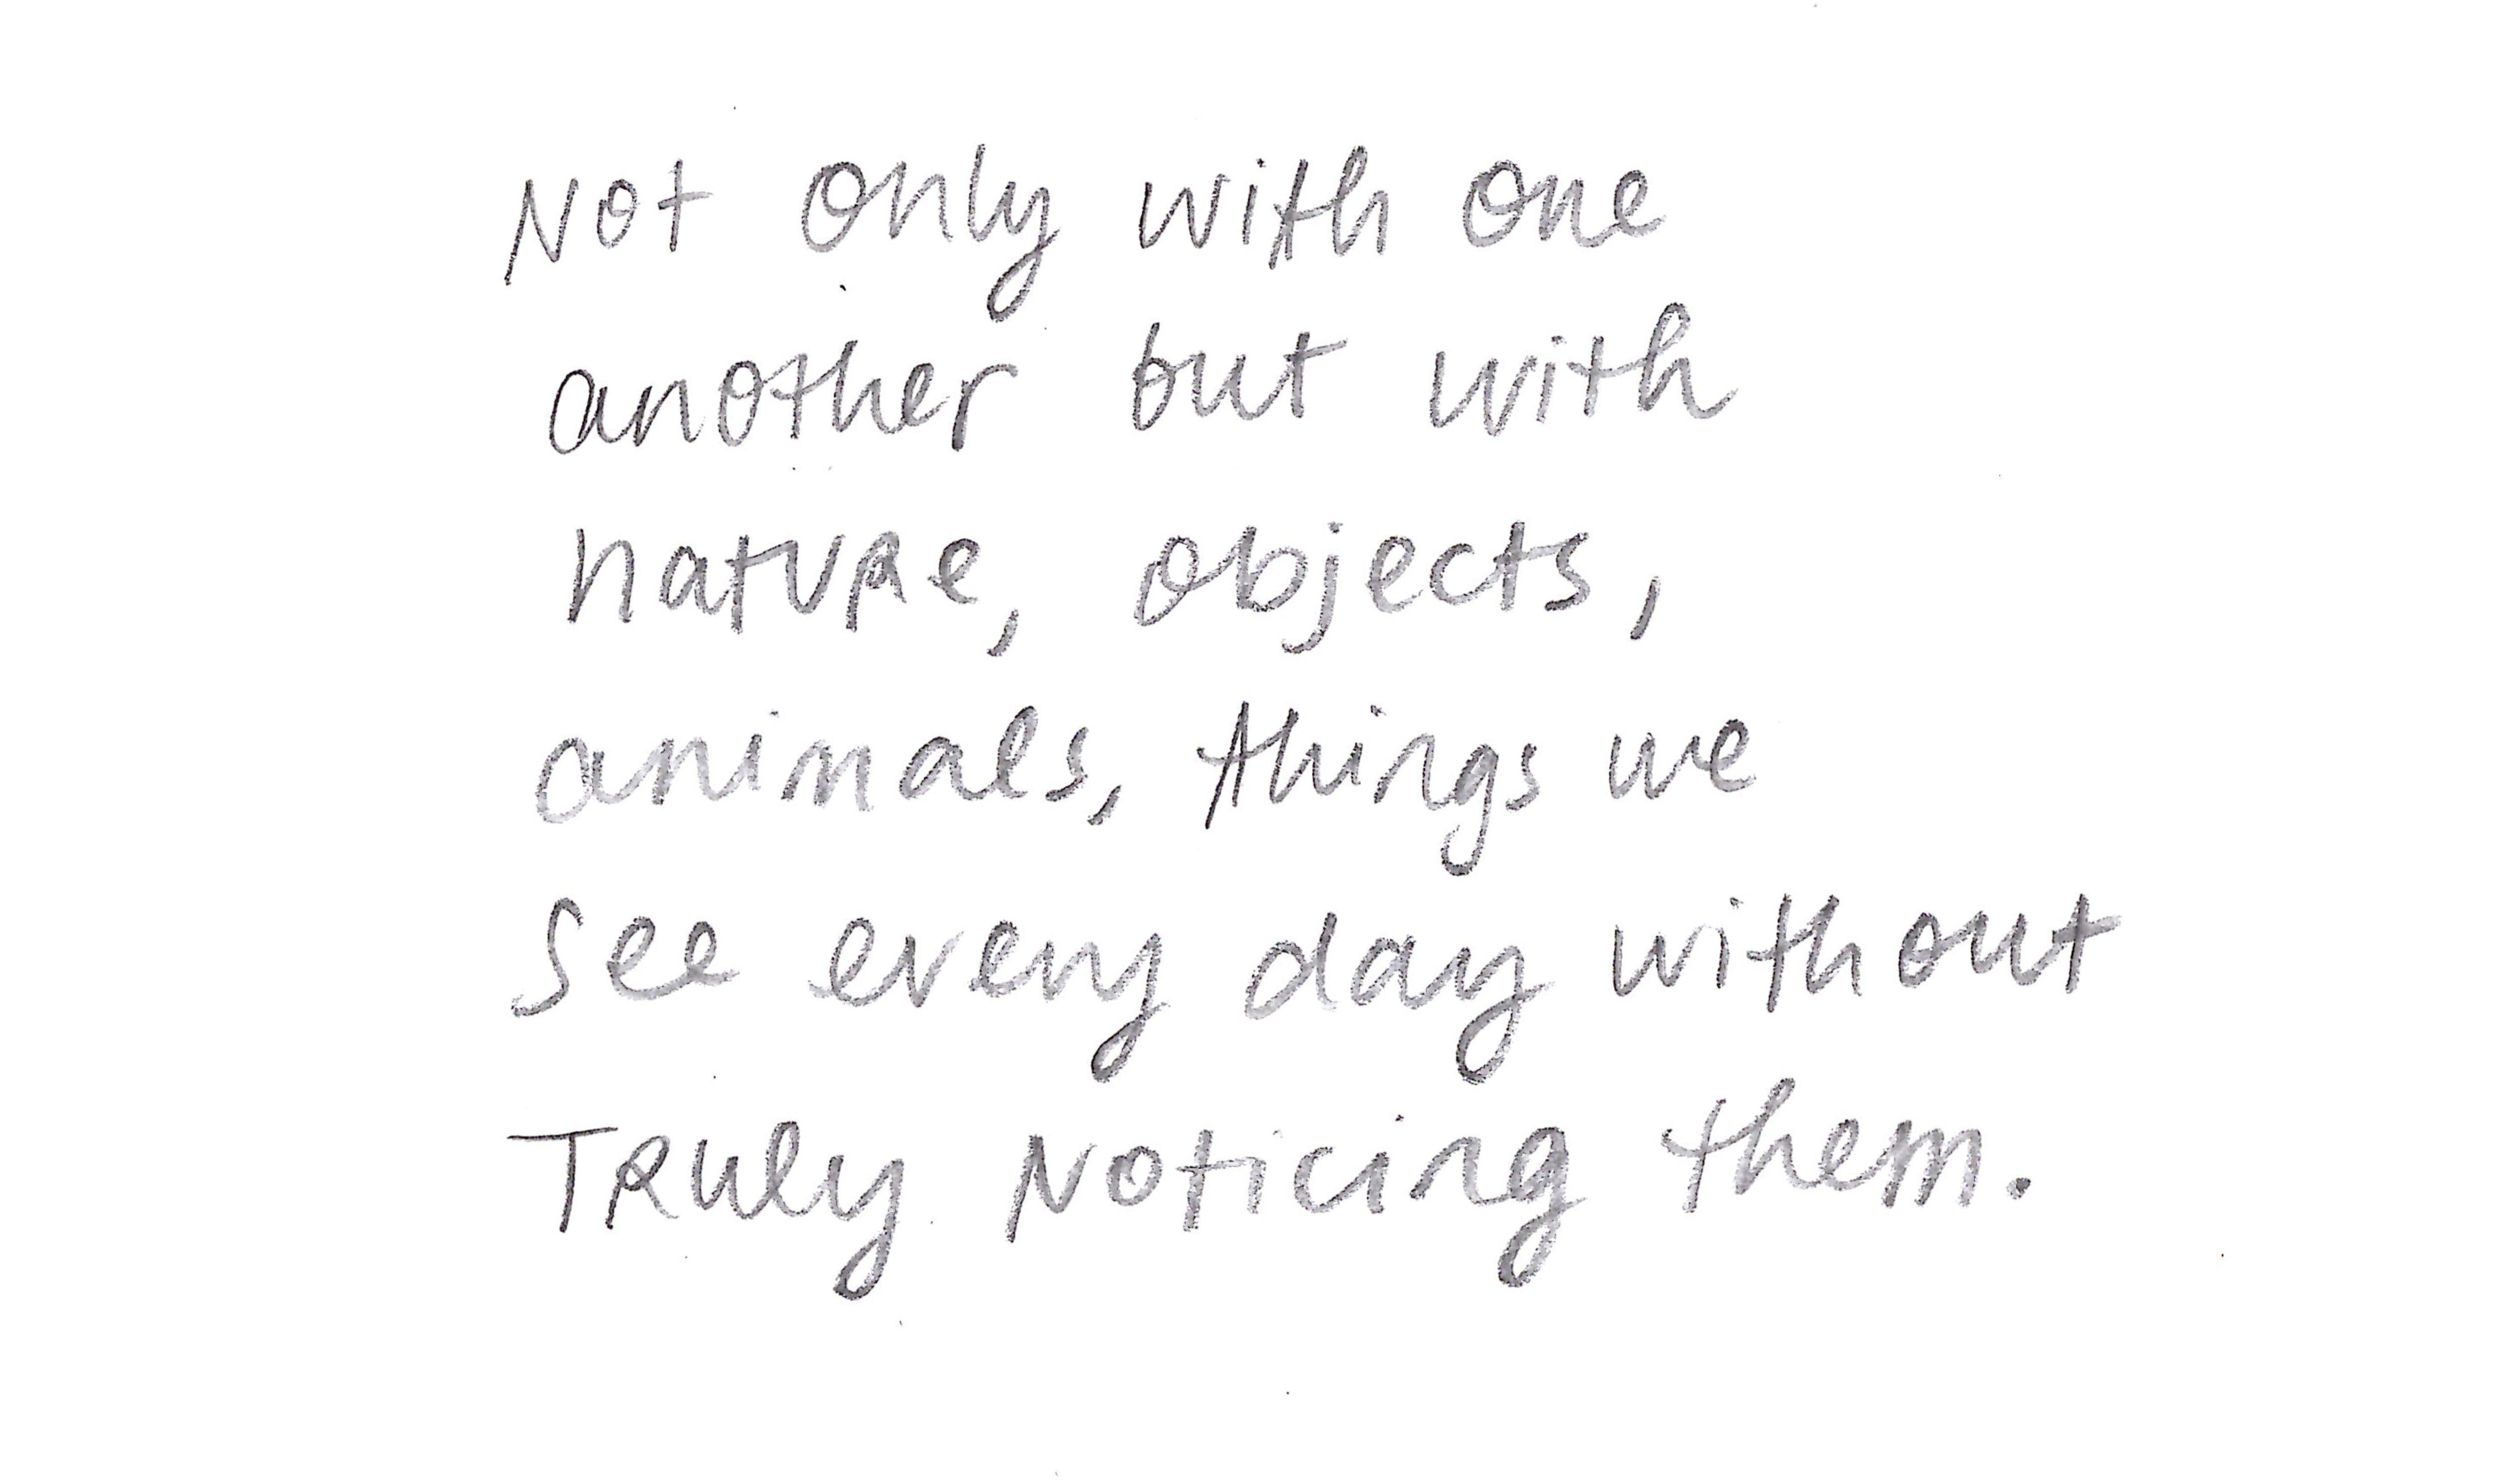 Not only with one
another but with
nature, objects,
animals, things we
see every day without
Truly Noticing them.